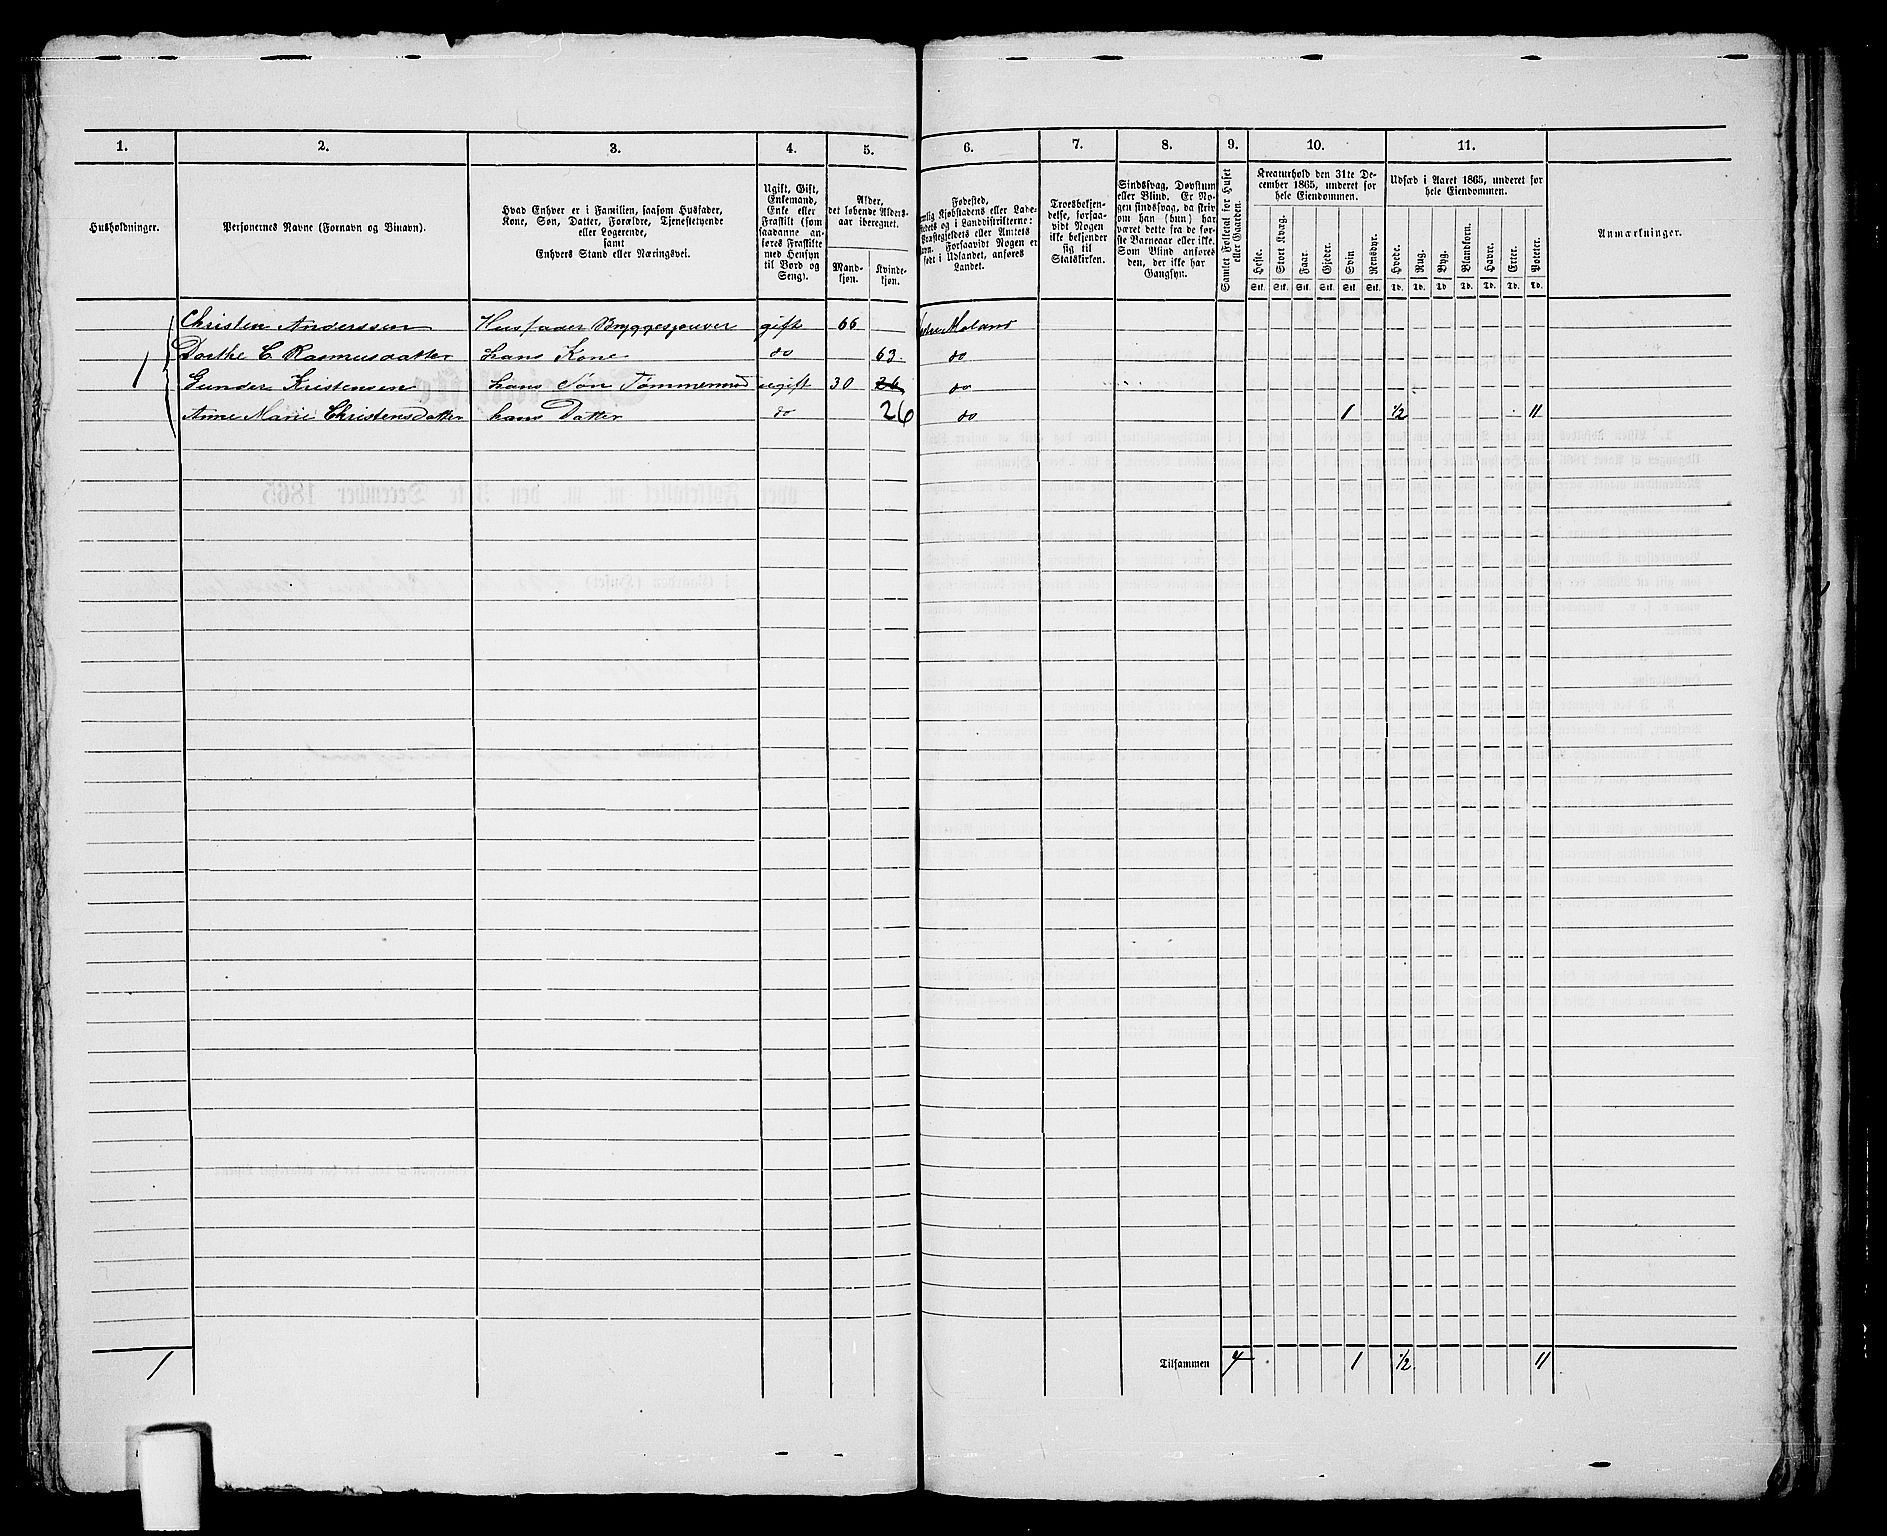 1. 2. 3. 4. 5. 6. 7. 8. 9. 10. 11.
Husholdninger.
Personernes Navne (Fornavn og Binavn).
Hvad Enhver er i Familien, saasom Husfader,
Kone, Søn, Datter, Forældre, Tjenestetyende
eller Logerende,
samt
Enhvers Stand eller Næringsvei.
Ugift, Gift,
Enkemand,
Enke eller
Fraskilt (som
saadanne an-
føres Fraskilte
med Hensyn
til Bord og
Seng).
Alder,
det løbende Alders-
aar iberegnet.
Mand-
kjøn.
Kvinde-
kjøn.
Fødested,
Kjøbstadens eller Lade-
og i Landdistrikterne:
Præstegjeldets eller Amtets
Forsaavidt Nogen er
født i Udlandet, anføres
Landet.
Troesbekjen-
delse, forsaa-
vidt Nogen
ikke bekjender
sig til
Statskirken.
Sindssvag, Døvstum
eller Blind. Er No-
gen sindssvag, da skriv
om han (hun) har
været dette fra de før-
ste Barneaar eller ikke.
Som Blind anføres
den, der ikke har
Gangsyn.
Samlet Folketal for Huset
eller Gaarden.
Kreaturhold den 31te De-
cember 1865, underet for
hele Eiendommen.
Heste. Stort Kvæg. Faar. Gjeder. Svin Rensdyr.
Stk. Stk. Stk. Stk. Stk. Stk.
Udsæd i Aaret 1865, underet for
hele Eiendommen.
Hvede. Rug. Byg. Blandkorn. Havre. Erter. Poteter.
Td. Td. Td Td. Td. Td. Td.
Anmærkninger.
Christen Anderssen Husfader Bryggesjouer gift 66 Moland
Dorthe C. Rasmusdatter hans Kone do 63. do
1 Gunder Kristensen hans Søn Tømmermd ugift 30 26 do
Anne Marie Christensdatter hans Datter do 26 do 1 1/2 11
1 Tilsammen 4 1 1/2 11